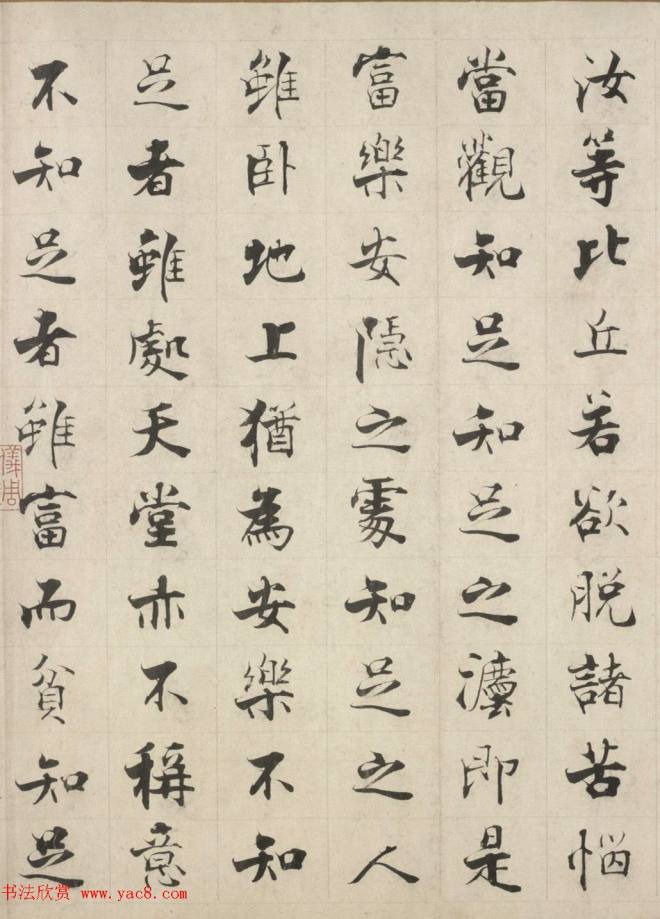 汝等比丘若欲脱諸苦惱
當觀知足知足之灋即是
富樂安隱之處知足之人
雖卧地上猶為安樂不知
足者雖處天堂亦不稱意
不知足者雖富而貧知足
儀周
书法欣赏 www.yac8.com